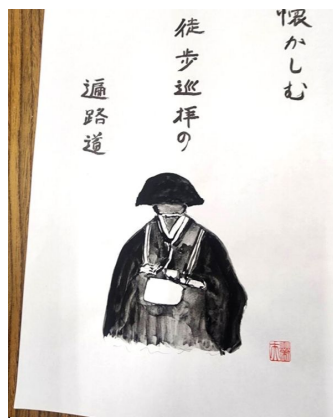 懐かしむ
徒歩巡拝の
遍路道